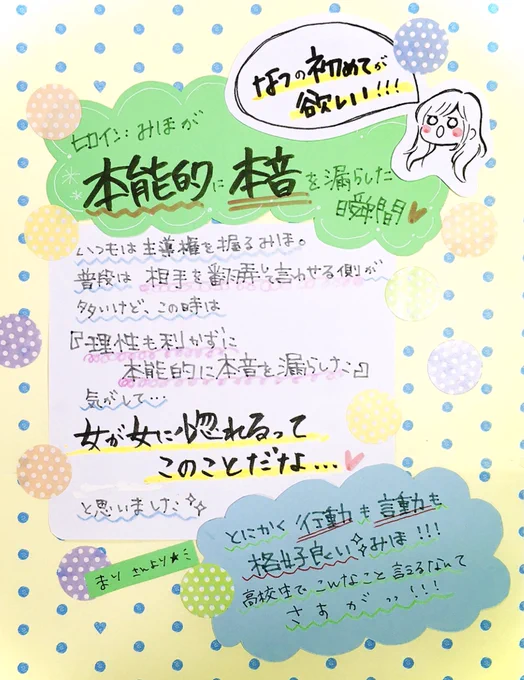 なつの初めてが
欲しい!!!
ヒロイン:みほが
本能的に本音を漏らした
瞬間♥
いつもは主導権を握るみほ。
普段は相手を翻弄して言わせる側が
多いけど、この時は
『理性も利かずに
本能的に本音を漏らした』
気がして…
女が女に惚れるって
このことだな…♥
と思いました✨
とにかく行動も言動も
格好良い✨みほ!!!
高校生でこんなこと言えるなんて
さすがッッ!!!
まりさんより★ミ